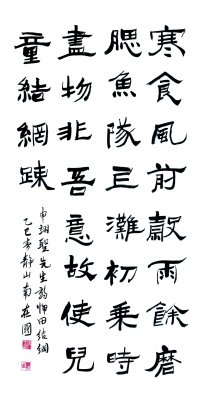 寒食風前穀雨餘磨
腮魚隊上灘初乘時
盡物非吾意故使兒
童結網疎
申翊聖先生 田結網
乙巳 靜山南